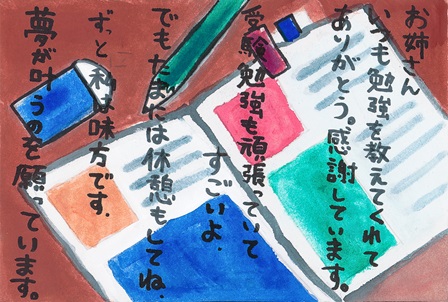 お姉さん
いつも勉強を教えてくれて
ありがとう。感謝しています。
受験勉強も頑張っていて
すごいよ.
でもたまには休憩もしてね.
ずっと私は味方です.
夢が叶うのを願っています。